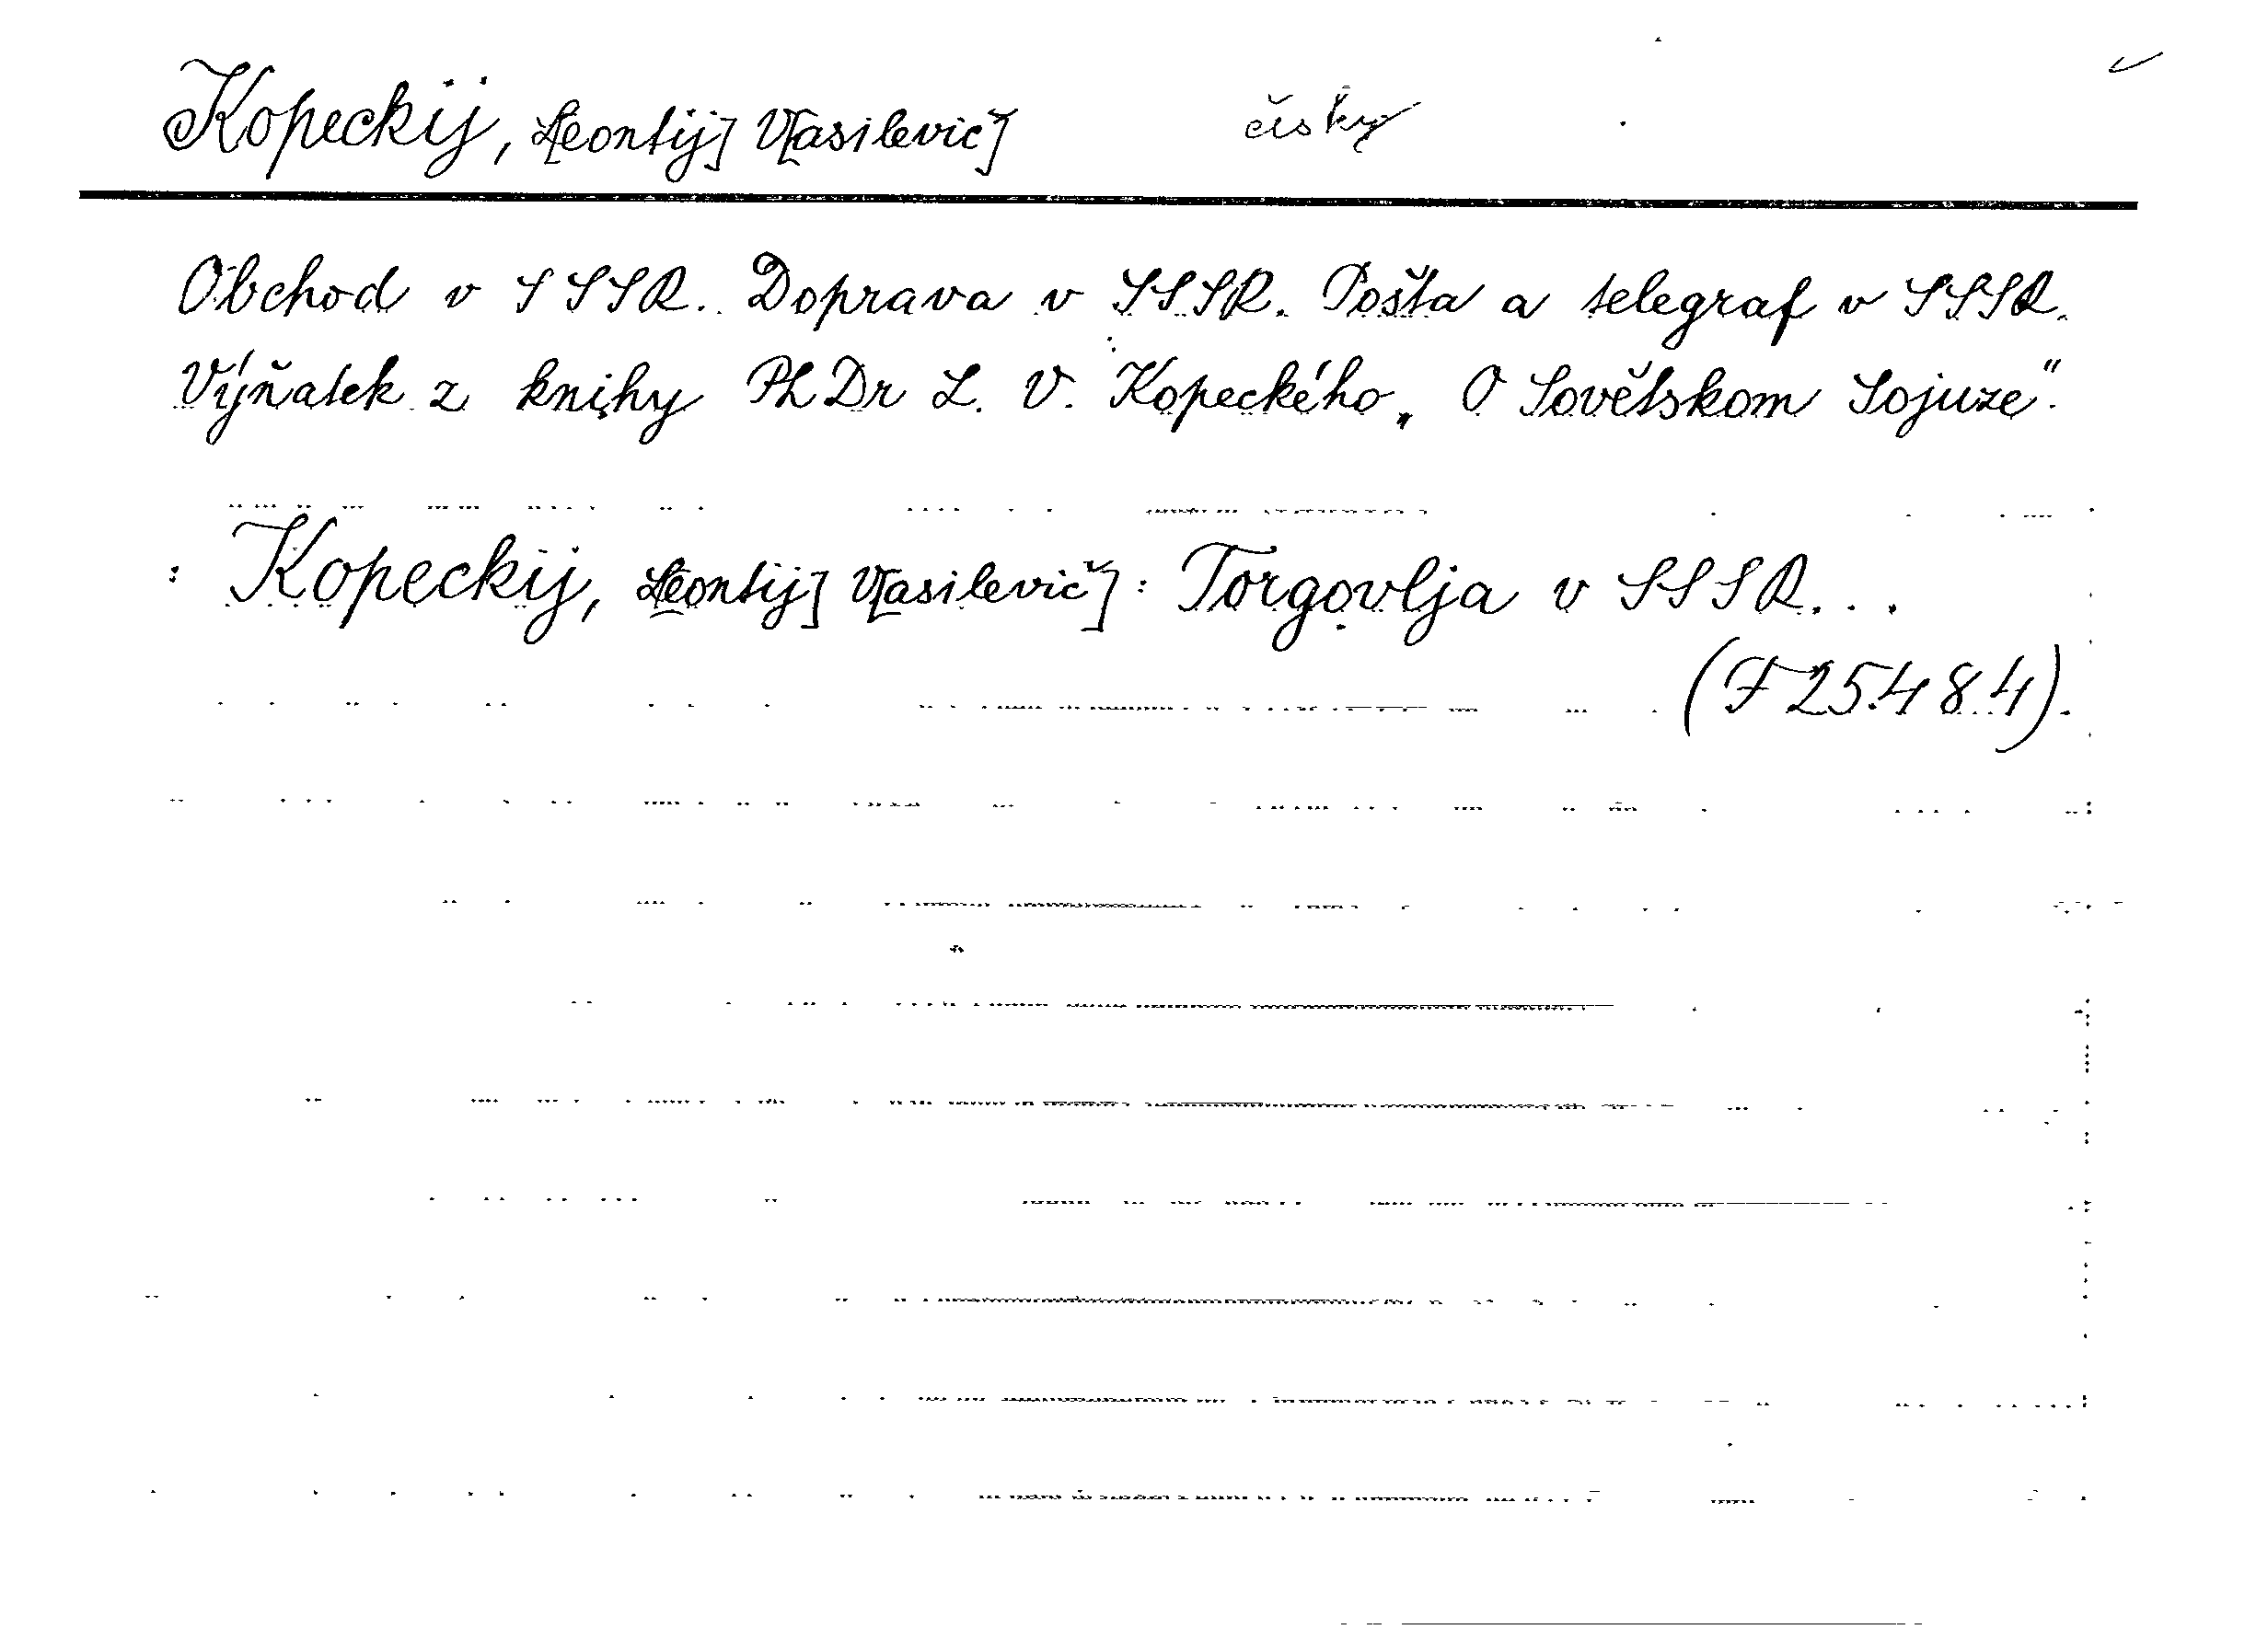 Kopeckij, L[eontij] V[asilevič] česky
Obchod v SSSR. Doprava v SSSR. Pošta a telegraf v SSSR.
Výňatek z knihy PhDr L. V. Kopeckého „O Sovětskom Sojuze".
: Kopeckij, L[eontij] V[asilevič]: Torgovlja v SSSR...
(F 25.484).